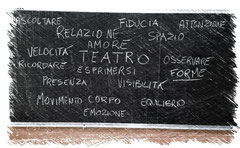 ASCOLTARE FIDUCIA ATTENZIONE
RELAZIONE SPAZIO
AMORE
VELOCITÀ TEATRO OSSERVARE
RICORDARE ESPRIMERSI FORME
PRESENZA VISIBILITÀ
MOVIMENTO CORPO EQUILIBRO
EMOZIONE